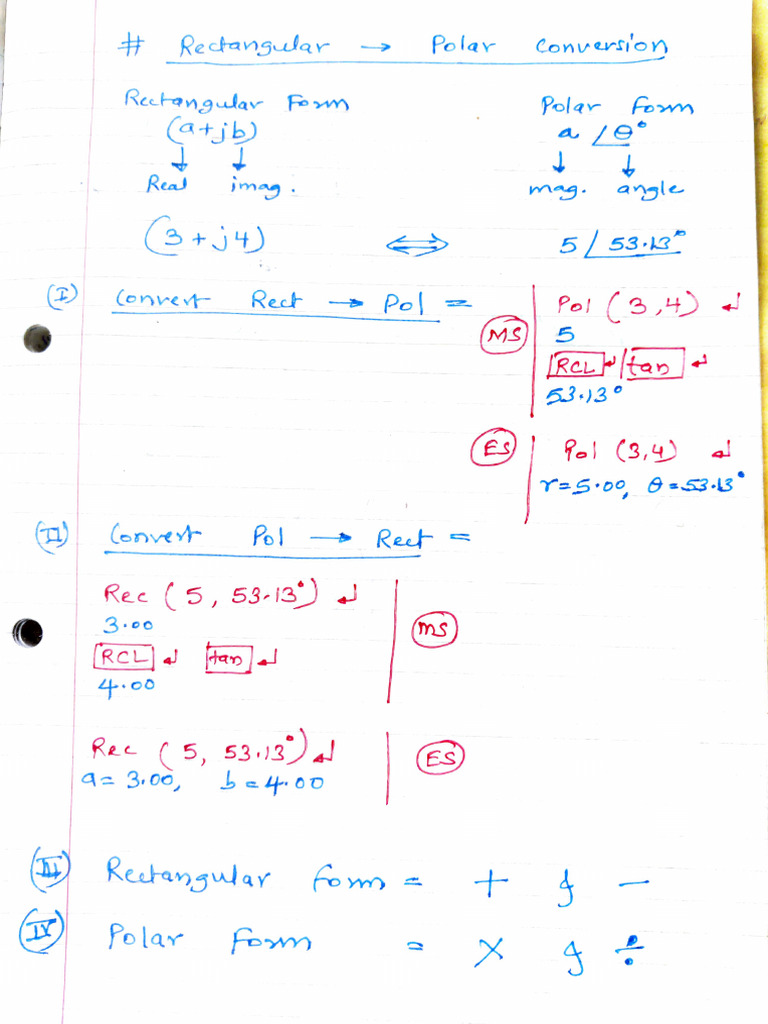 # Rectangular → Polar Conversion
Rectangular Form Polar Form
(a+jb) a ∠θ°
↓ ↓ ↓ ↓
Real imag. mag. angle
(3+j4) ⇔ 5∠53.13°
(I) Convert Rect → Pol =
MS
Pol (3,4) ↲
5
RCL ↲ tan ↲
53.13°
ES
Pol (3,4) ↲
r=5.00, θ=53.13°
(II) Convert Pol → Rect =
Rec (5, 53.13°) ↲
3.00
MS
RCL ↲ tan ↲
4.00
Rec (5, 53.13°) ↲
ES
a=3.00, b=4.00
(III) Rectangular form = + & −
(IV) Polar Form = × & ÷